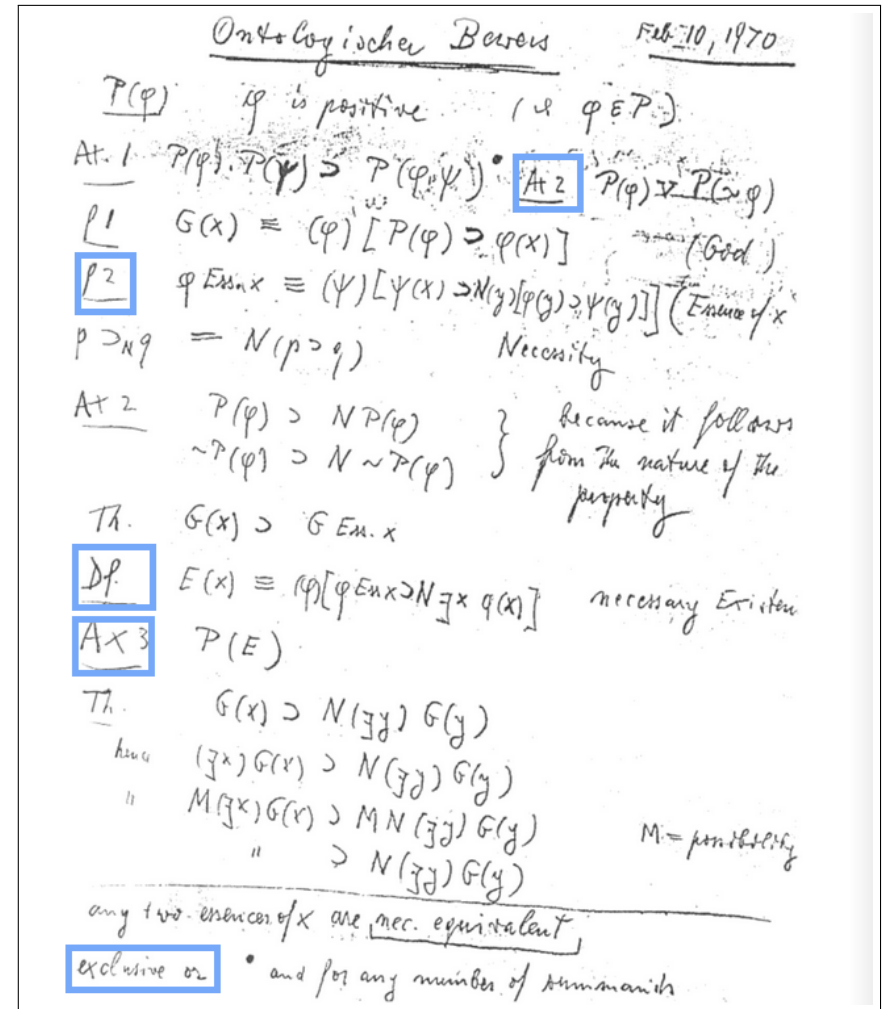 Ontologischer Beweis Feb. 10, 1970
P(φ) φ is positive (ie φ ε P.)
At. 1 P(φ).P(ψ) ⊃ P(φ.ψ)• At 2 P(φ) ∨ P(~φ)
P1 G(x) ≡ (φ)[P(φ) ⊃ φ(x)] (God)
P2 φ Ess. x ≡ (ψ)[ψ(x) ⊃ N(y)[φ(y) ⊃ ψ(y)]] (Essence of x
p ⊃ₙ q = N(p ⊃ q) Necessity
At 2 P(φ) ⊃ N P(φ) } because it follows
~P(φ) ⊃ N ~P(φ) } from the nature of the
property
Th. G(x) ⊃ G Ess. x
Df. E(x) ≡ (φ)[φ Ess x ⊃ N ∃x φ(x)] necessary Existen
Ax 3 P(E)
Th. G(x) ⊃ N(∃y) G(y)
hence (∃x) G(x) ⊃ N(∃y) G(y)
" M(∃x) G(x) ⊃ M N (∃y) G(y) M = possibility
" ⊃ N(∃y) G(y)
any two essences of x are nec. equivalent
exclusive or • and for any number of summands